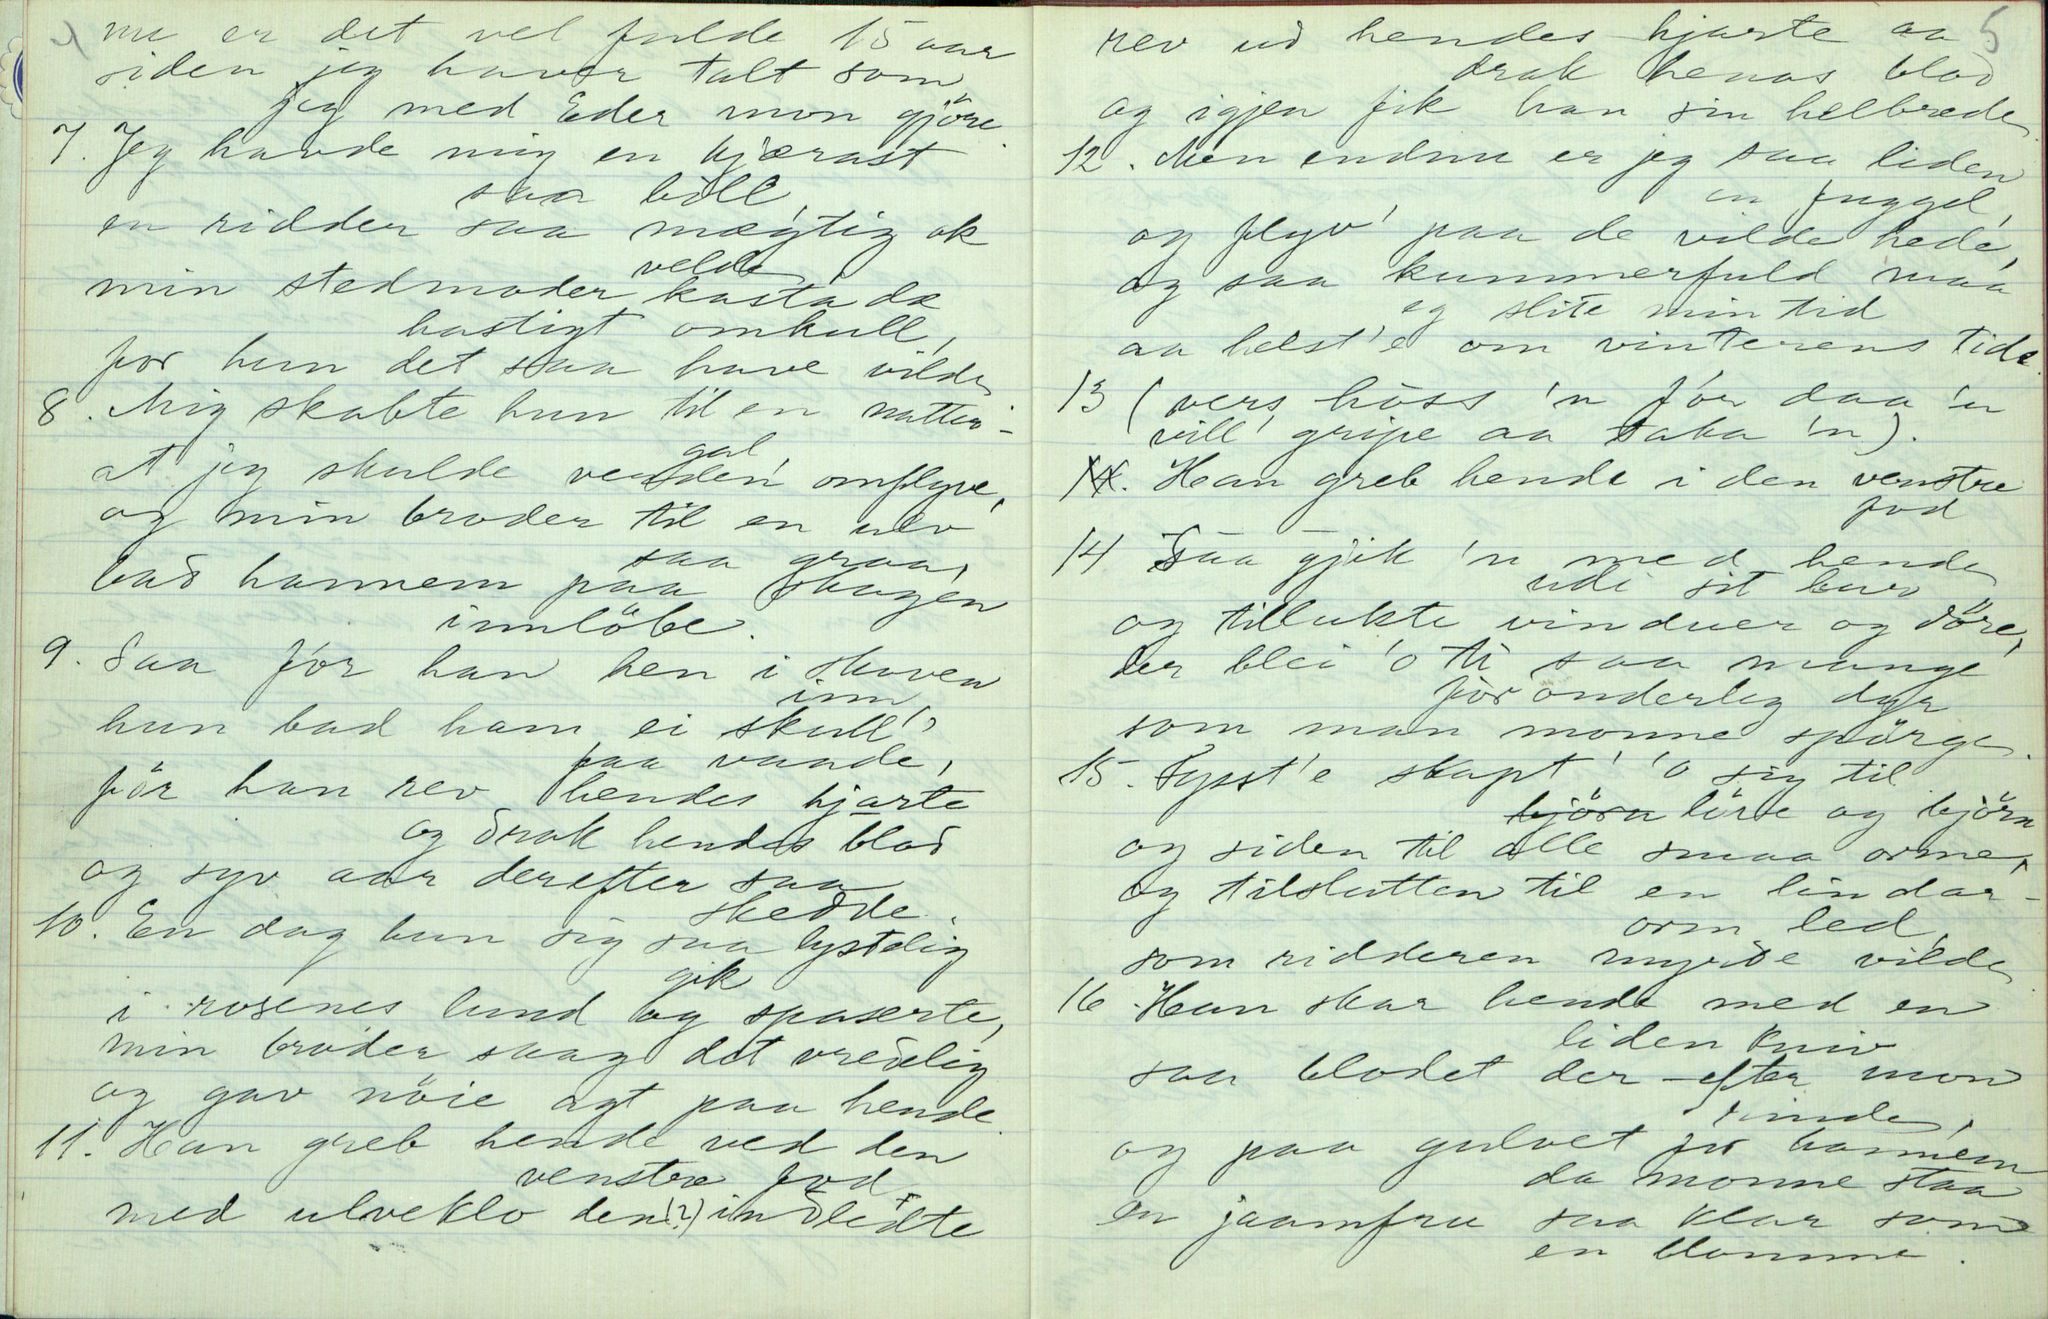 nu er det vel fulde 15 aar
siden jeg haver talt som
jeg med Eder mon gjöre.
7. Jeg havde mig en kjærast
saa bill,
en ridder saa mægtig ok
velde,
min stedmoder kasta da
hastigt omkull,
for hun det saa have vilde
8. Mig skabte hun til en natter-
gal,
at jeg skulde verden omflyve,
og min broder til en ulv
saa graa,
bad hannem paa skogen
innlöbe.
9. Saa for han hen i skoven
inn,
hun bad ham ei skull'
faa vande,
för han rev hendes hjarte
og drak hendes blod
og syv aar derefter saa
skedde.
10. En dag hun sig saa lystelig
gik
i rosenes lund og spaserte,
min broder saag det vredelig
og gav nöie agt paa hende.
11. Han greb hende ved den
venstre fod
med ulveklo den (?) indledte
5
rev ud hendes hjarte aa
drak henas blod
og igjen fik han sin helbrede.
12. Men endnu er jeg saa liden
en fuggel,
og flyv' paa de vilde hede,
og saa kummerfuld maa
eg slite min tid
aa helst'e om vinterens tide.
13 (vers höss 'n fór daa 'n
vill' gripe aa taka 'n).
14. Han greb hende i den venstre
fod
14 Saa gjik 'n med hende
udi sit bur
og tillukte vinduer og döre,
der blei 'o ti saa mange
foronderlig dyr
som man monne spörge.
15. Fysst'e skapt' 'o sig til
björn löve og björn
og siden til alle smaa orme,
og tilslutten til en lindar-
orm led,
som ridderen myrde vilde
16. Han skar hende med en
liden kniv
saa blodet der efter mon
rinde,
og paa gulvet for hannem
da monne staa
en jaamfru saa klar som
en blomme.